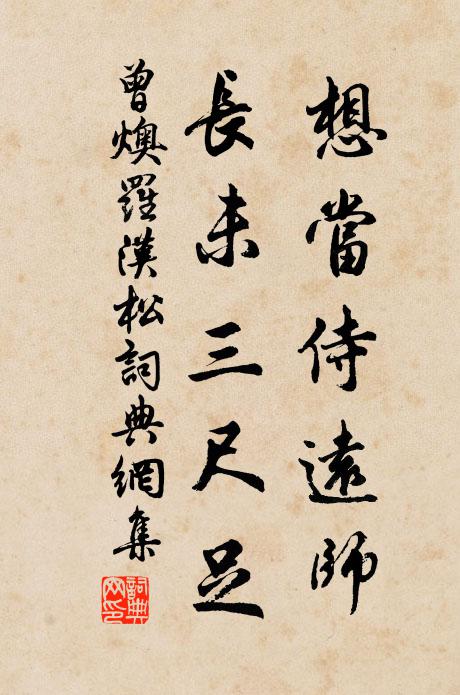 想當侍遠師
長未三尺足
曾燠羅漢松詞典網集
詞典網印